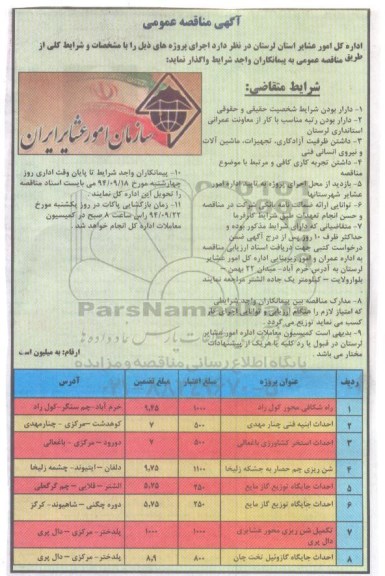 آگهی مناقصه عمومی
اداره کل امور عشایر استان لرستان در نظر دارد اجرای پروژه های ذیل را با مشخصات و شرایط کلی از طریق مناقصه عمومی به پیمانکاران واجد شرایط واگذار نماید:
شرایط متقاضی:
سازمان امور عشایر ایران
۱- دارار بودن شرایط شخصیت حقیقی و حقوقی
۲- دارار بودن رتبه مناسب با کار از معاونت عمرانی
استانداری لرستان
۳- داشتن ظرفیت آزادکاری، تجهیزات، ماشین آلات
و نیروی انسانی فنی
۴- داشتن تجربه کاری کافی و مرتبط با موضوع
مناقصه
۵- بازدید از محل اجرای پروژه به تایید اداره امور
عشایر شهرستانها
۶- توانایی ارائه ضمانت نامه بانکی شرکت در مناقصه
و حسن انجام تعهدات طبق شرایط کارفرما
۷- متقاضیانی که دارای شرایط مذکور بوده و
حداکثر ظرف ۱۰ روز پس از درج آگهی ضمن
درخواست کتبی جهت دریافت اسناد ارزیابی مناقصه
به اداره عمران و امور زیربنایی اداره کل امور عشایر
لرستان به آدرس خرم آباد- میدان ۲۲ بهمن –
بلوار ولایت – کیلومتر یک جاده الشتر مراجعه نمایند
۸- مدارک مناقصه بین پیمانکاران واجد شرایطی
که امتیاز لازم را هنگام ارزیابی و توانایی اجرای کار
کسب می نماید توزیع می گردد
۹- بدیهی است کمیسیون معاملات اداره امور عشایر
لرستان در قبول یا رد کلیه یا هریک از پیشنهادات
مختار می باشد.
۱۰- پیمانکاران واجد شرایط تا پایان وقت اداری روز
چهارشنبه مورخ ۹۴/۰۹/۱۸ می بایست اسناد مناقصه
را تحویل این اداره کل نمایند.
۱۱- زمان بازگشایی پاکات در روز یکشنبه مورخ
۹۴/۰۹/۲۲ راس ساعت ۸ صبح در کمیسیون
معاملات اداره کل انجام خواهد شد.
ParsNamad
پایگاه اطلاع رسانی مناقصه و مزایده
ارقام: به میلیون است
ردیف عنوان پروژه مبلغ اعتبار مبلغ تضمین آدرس
۱ راه شکافی محور کول راد ۱۰۰۰ ۹,۲۵ خرم آباد-چم سنگر-کول راد
۲ احداث ابنیه فنی چنار مهدی ۵۰۰ ۷ کوهدشت -مرکزی – چنارمهدی
۳ احداث استخر کشاورزی باغعالی ۵۰۰ ۷ دورود – مرکزی – باغعالی
۴ شن ریزی چم حصار به جشکه زلیخا ۱۱۰۰ ۹,۷۵ دلفان – ایتیوند- چشمه زلیخا
۵ احداث جایگاه توزیع گاز مایع ۲۵۰ ۵,۷۵ الشتر – قلایی – چم گرگعلی
۶ احداث جایگاه توزیع گاز مایع ۲۵۰ ۵,۷۵ دوره چگنی – شاهیوند- کرکز
۷ تکمیل شن ریزی محور عشایری دال پری ۱۰۰۰ ۱۰۰۰ پلدختر- مرکزی – دال پری
۸ احداث جایگاه گازوئیل تخت چان ۸۰۰ ۸,۹ پلدختر- مرکزی – دال پری